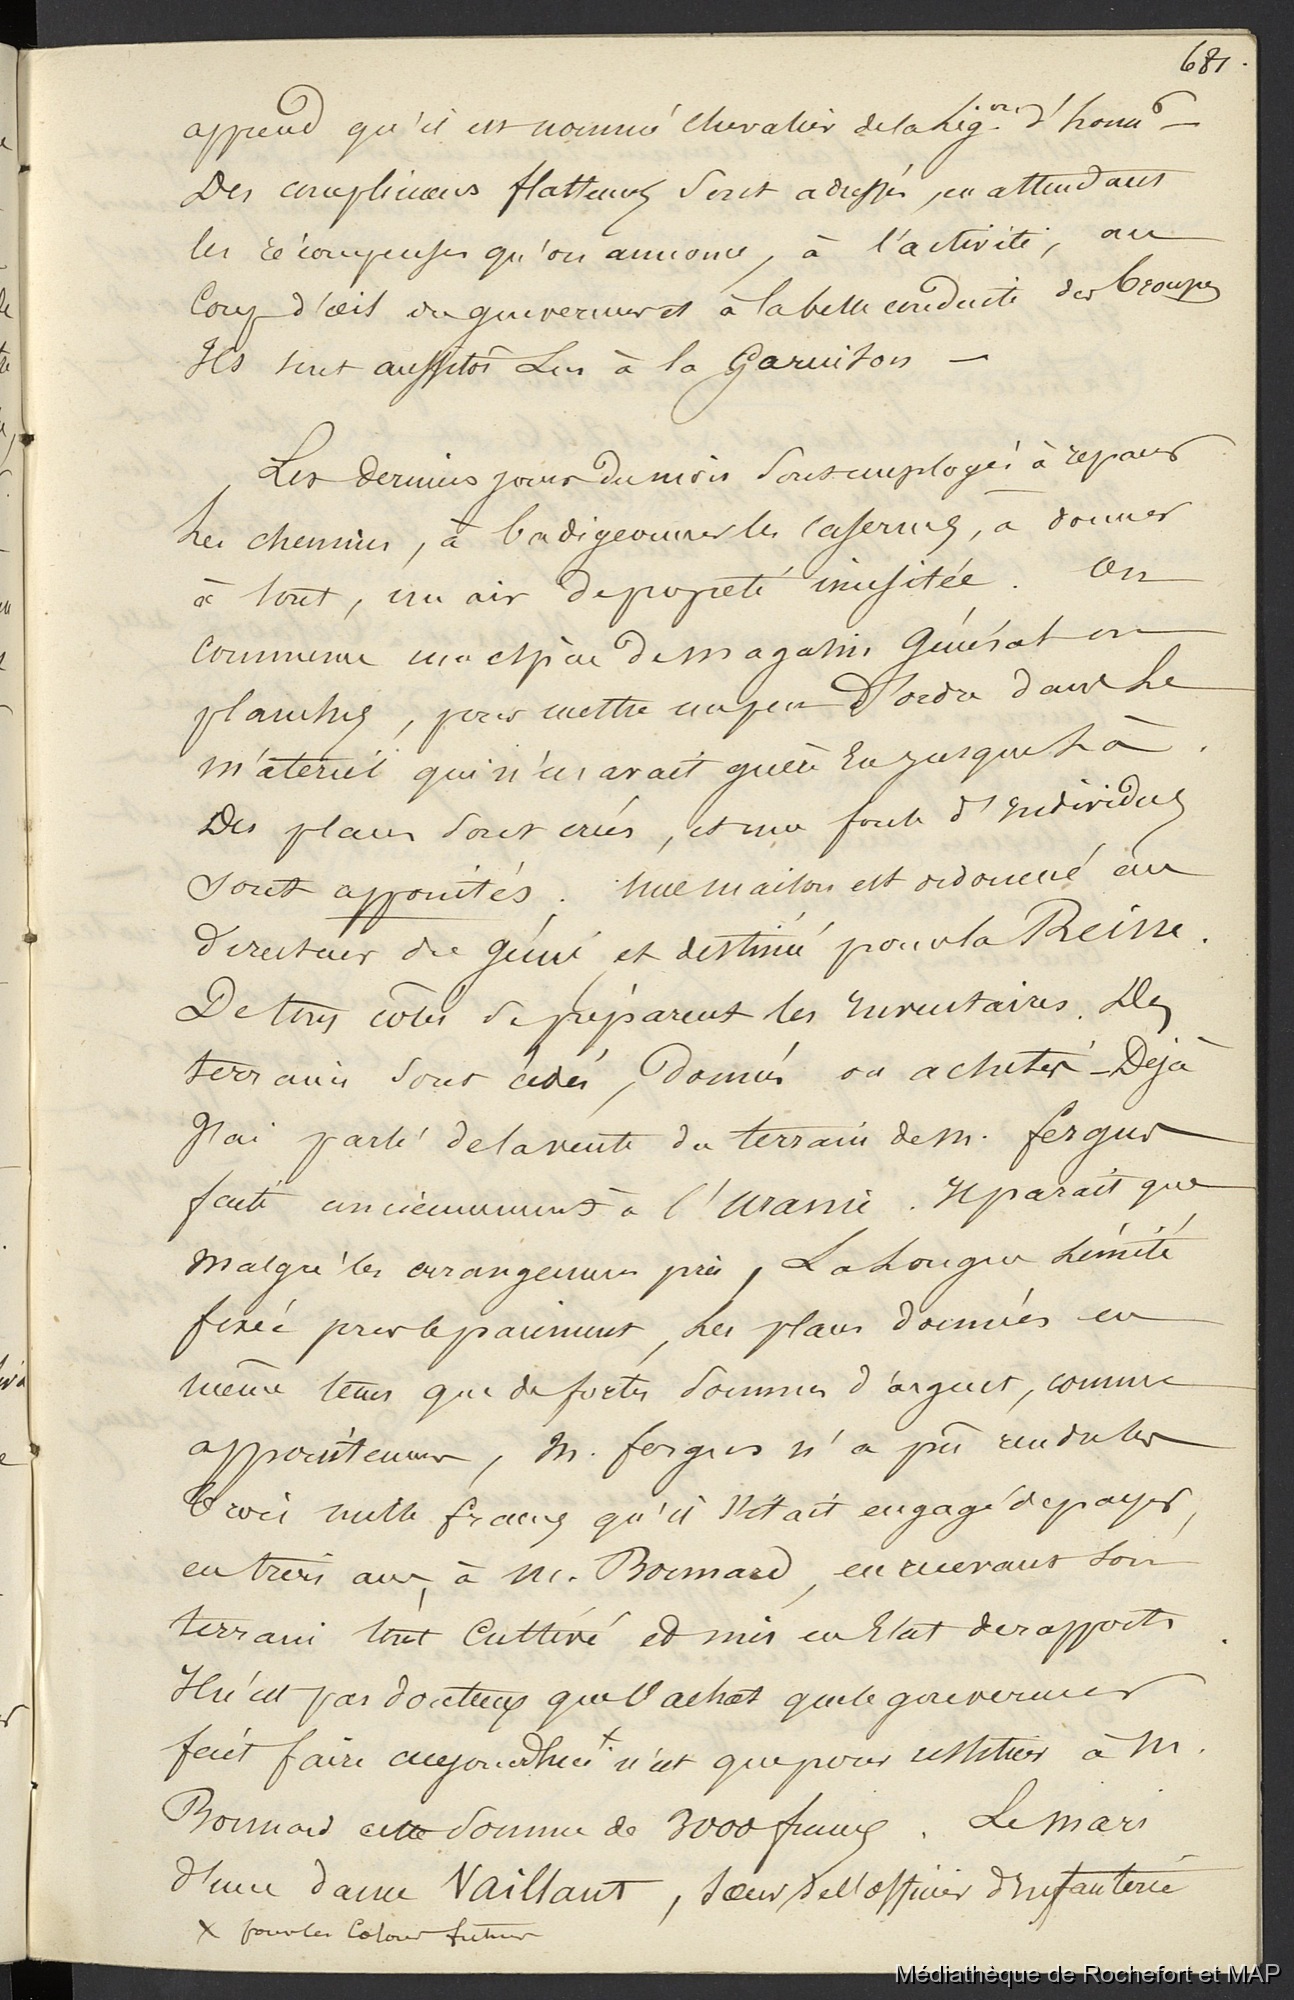 681.
apprend qu'il est nommé chevalier de la Lég.on d'honn.r —
Des complimens flatteurs sont adressés, en attendant
les récompenses qu'on annonce, à l'activité, au
Coup d'œil du gouverneur et à la belle conduite des troupes
Ils sont aussitôt Lus à la Garnison —
Les derniers jours du mois sont employés à reparer
Les chemins, à badigeonner les casernes, à donner
à tout, un air de propreté inusitée. On
commence une espèce de magasin Général en
planches, pour mettre un peu d'ordre dans Le
matériel qui n'en avait guère Eu jusque Là.
Des places sont créés, et une foule d'Individus
sont appointés. Une maison est ordonnée au
directeur du génie et destinée pour la Reine.
De tous côtés se préparent les Inventaires. Des
terrains sont cédés, donnés ou achetés — Déjà
J'ai parlé de la vente du terrain de M. fergus
faite anciennement à l'Uranie. Il parait que
malgré les arrangemens pris, La Longue Limite
fixée pour le paiement, Les places données en
même tems que de fortes sommes d'argent, comme
appointemens, M. fergus n'a pû rendre les
trois mille francs qu'il s'était engagé de payer,
en trois ans, à M. Bonnard, en recevant son
terrain tout Cultivé et mis en Etat de rapports.
Il n'est pas douteux que l'achat que le gouverneur
fait faire aujourd'hui x n'est que pour restituer à M.
Bonnard cette somme de 3000 francs. Le mari
d'une dame Vaillant, sœur de l'officier d'Infanterie
x pour les Colons futurs
Médiathèque de Rochefort et MAP